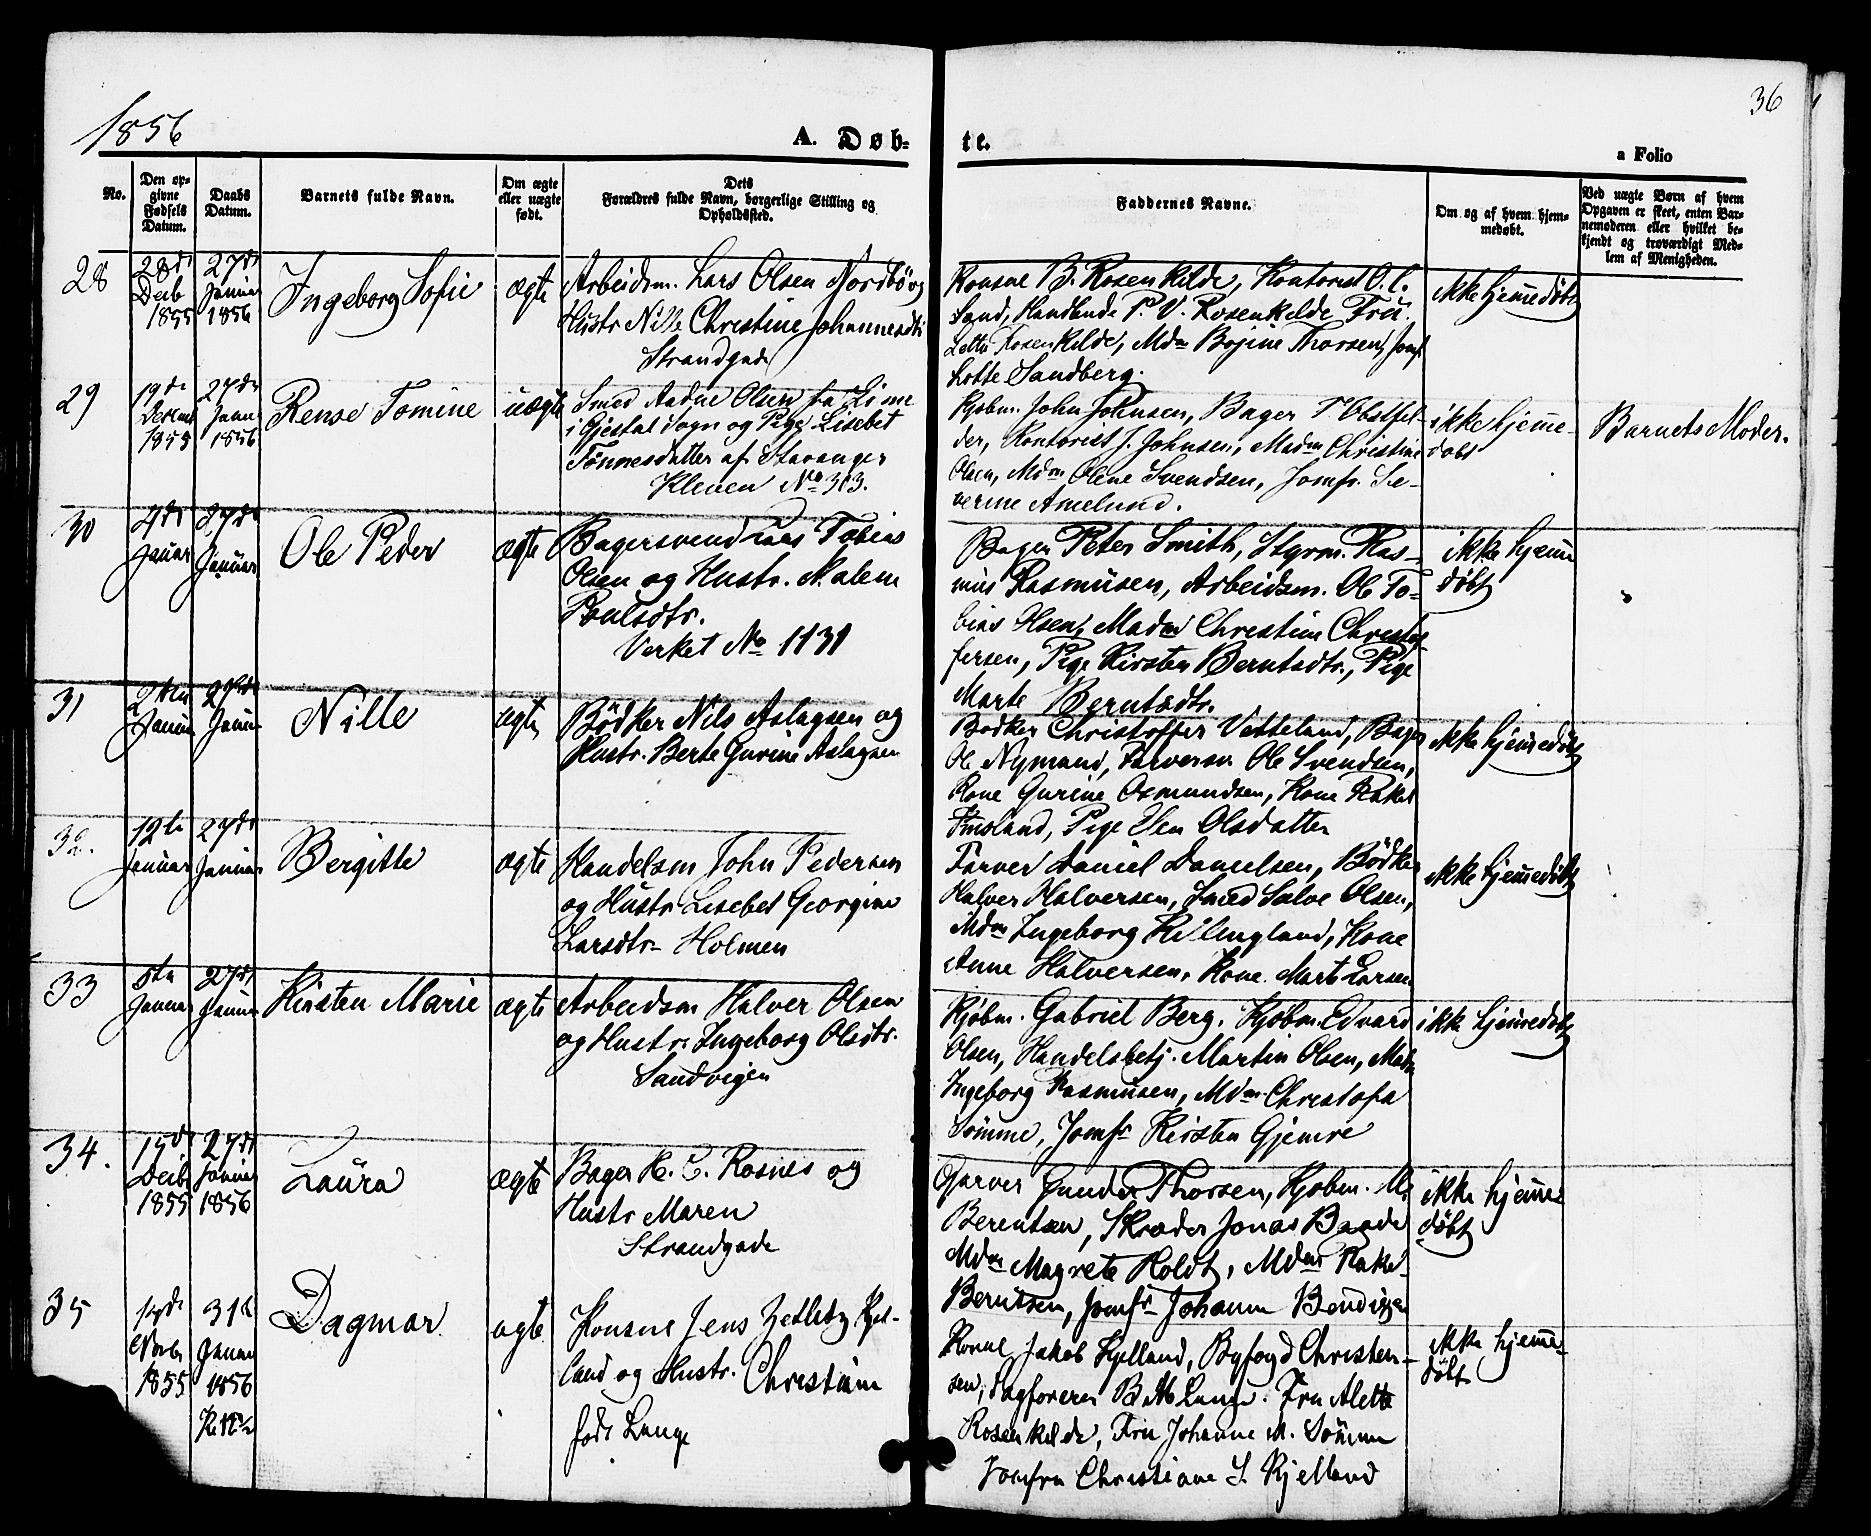 1856
A. Døb-
te.
36
a Folio
No.
Den op-
givne
Fødsels
Datum.
Daabs
Datum.
Barnets fulde Navn.
Om ægte
eller uægte
født.
Dets
Forældres fulde Navn, borgerlige Stilling og
Opholdssted.
Faddernes Navne.
Om og af hvem hjem-
medøbt.
Ved uægte Børn af hvem
Opgaven er skeet, enten Bar-
nemoderen eller hvilket be-
kjendt og troværdigt Med-
lem af Menigheden.
28
28de
Decb
1855
27de
Januar
1856
Ingeborg Sofie
ægte
Arbeidsm. Lars Olsen Nordbö og
Hustr Nille Christine Johannesdtr
Strandgade
Konsul B. Rosenkilde, Kontorist O. C.
Sand, Handlende P. V. Rosenkilde Fru
Rosenkilde, Mdm Bojine Thorsen, Jomf
Lotte Sandberg.
ikke hjemmedøbt
29
19de
1855
27de
Janu
1856
Rense Tomine
uægte
Smed Aadne Olsen fra Lime
i Gjestal Sogn og Pige Lisebet
Tönnesdatter af Stavanger
Kleven No 313.
Kjøbm. John Johnsen, Bager T Obstfel-
der, Kontorist J. Johnsen, Madm Christine
Olsen, Mdm Olene Svendsen, Jomfr. Se-
verine Amelund.
ikke hjemme-
døbt
Barnets Moder.
30
4de
Januar
27de
Januar
Ole Peder
ægte
Bagersvend Lars Tobias
Olsen og Hustr. Malene
Poulsdtr.
Verket No 1131
Bager Peter Smith, Styrm. Ras-
mus Rasmusen, Arbeidsm. Ole To-
bias Olsen, Madm Christine Christof
fersen, Pige Kirsten Berntsdtr., Pige
Marte Berntsdtr.
ikke hjemme
døbt
31
2den
Januar
27de
Januar
Nille
ægte
Bödker Nils Aslagsen og
Hustr. Berte Gurine Aslagsen
Bødker Christoffer Vetteland, Bager
Ole Nymand, Farversv. Ole Svendsen,
Kone Gurine Osmundsen, Kone Rakel
Fuusland, Pige Elen Olsdatter
ikke hjemmedøbt
32.
12te
Januar
27de
Januar
Bergitte
ægte
Handelsm John Pedersen
og Hustr Lisebet Georgine
Larsdtr Holmen
Farver Daniel Danielsen, Bödker
Halver Halversen, Smed Salve Olsen,
Mdm Ingeborg Helingland, Kone
Anne Halversen, Kone Marte Larsen
ikke hjemmedøbt
33
5te
Januar
27de
Januar
Kirsten Marie
ægte
Arbeidsm Halver Olsen
og Hustr. Ingeborg Olsdtr.
Sandvigen
Kjøbm. Gabriel Berg, Kjøbm. Edvard
Olsen, Handelsbetj. Martin Olsen, Mdm
Ingeborg Rasmusen, Mdm Christofa
Sömme, Jomfr Kirsten Gjemre
ikke hjemmedøbt
34.
15de
Decb
1855
27de
Januar
1856
Laura
ægte
Bager H. C. Rosnes og
Hustr Maren
Strandgade
Garver Gunder Thorsen, Kjøbm. M.
Berentsen, Skræder Jonas Baade
Mdm Magrete Holdt, Mdm Rakel
Berntsen, Jomfr Johanne Bendixen
ikke hjemme
døbt
35
14de
Novbr
1855
31te
Januar
1856
Dagmar
ægte
Konsul Jens Zetlitz Kjel-
land og Hustr. Christiane
født Lange
Konsul Jakob Kjelland, Byfogd Christen-
sen, Sagförer B. M. Lange. Fru Alette
Rosenkilde, Fru Johanne M. Sömme
Jomfru Christiane S. Kjelland
ikke hjemme-
døbt